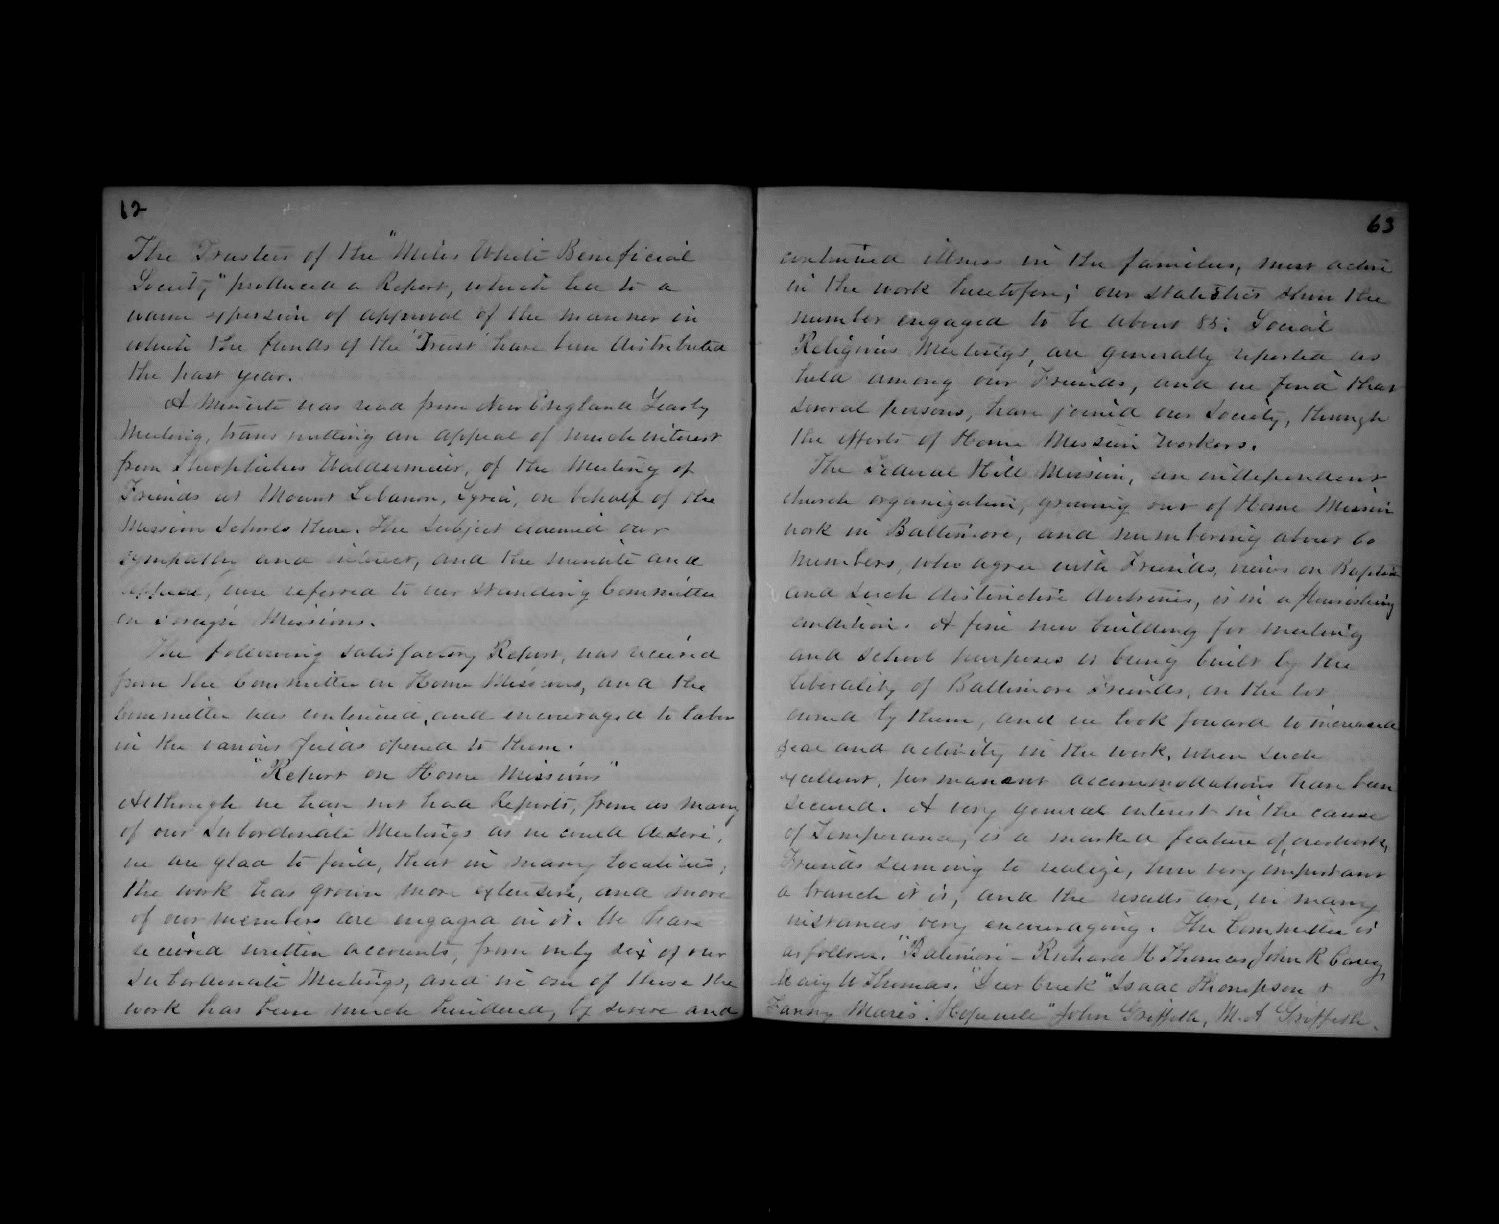 12
The Trustees of the "Miles White Beneficial
Society," produced a Report, which led to a
warm expression of approval of the manner in
which the funds of the 'Trust' have been distributed
the past year.
A Minute was read from New England Yearly
Meeting, transmitting an appeal of much interest
from Theophilus Waldermeier, of the Meeting of
Friends at Mount Lebanon, Syria, on behalf of the
Mission Schools there. The subject claimed our
sympathy and interest, and the minute and
appeal, were referred to our standing Committee
on Foreign Missions.
The following satisfactory Report, was received
from the Committee on Home Missions, and the
Committee was continued, and encouraged to labor
in the various fields opened to them.
"Report on Home Missions"
Although we have not had Reports, from as many
of our Subordinate Meetings as we could desire,
we are glad to find, that in many localities,
the work has grown more extensive, and more
of our members are engaged in it. We have
received written accounts, from only six of our
Subordinate Meetings, and in one of these the
work has been much hindered, by severe and
63
continued illness in the families, most active
in the work heretofore; our statistics show the
number engaged to be about 85; Social
Religious Meetings, are generally reported as
held among our Friends, and we find that
several persons, have joined our Society, through
the efforts of Home Mission Workers.
The Federal Hill Mission, an independent
church organization, growing out of Home Mission
work in Baltimore, and numbering about 60
members, who agree with Friends, views on Baptism
and such distinctive doctrines, is in a flourishing
condition. A fine new building for meeting
and school purposes is being built by the
liberality of Baltimore Friends, on the lot
owned by them, and we look forward to increased
zeal and activity in the work, when such
excellent, permanent accommodations have been
secured. A very general interest in the cause
of Temperance, is a marked feature of our work,
Friends seeming to realize, how very important
a branch it is, and the results are, in many
instances very encouraging. The Committee is
as follows. "Baltimore - Richard H Thomas, John R Carey,
Mary W Thomas. "Deer Creek" Isaac Thompson &
Fanny Maris. "Hopewell" John Griffith, M. A Griffith.